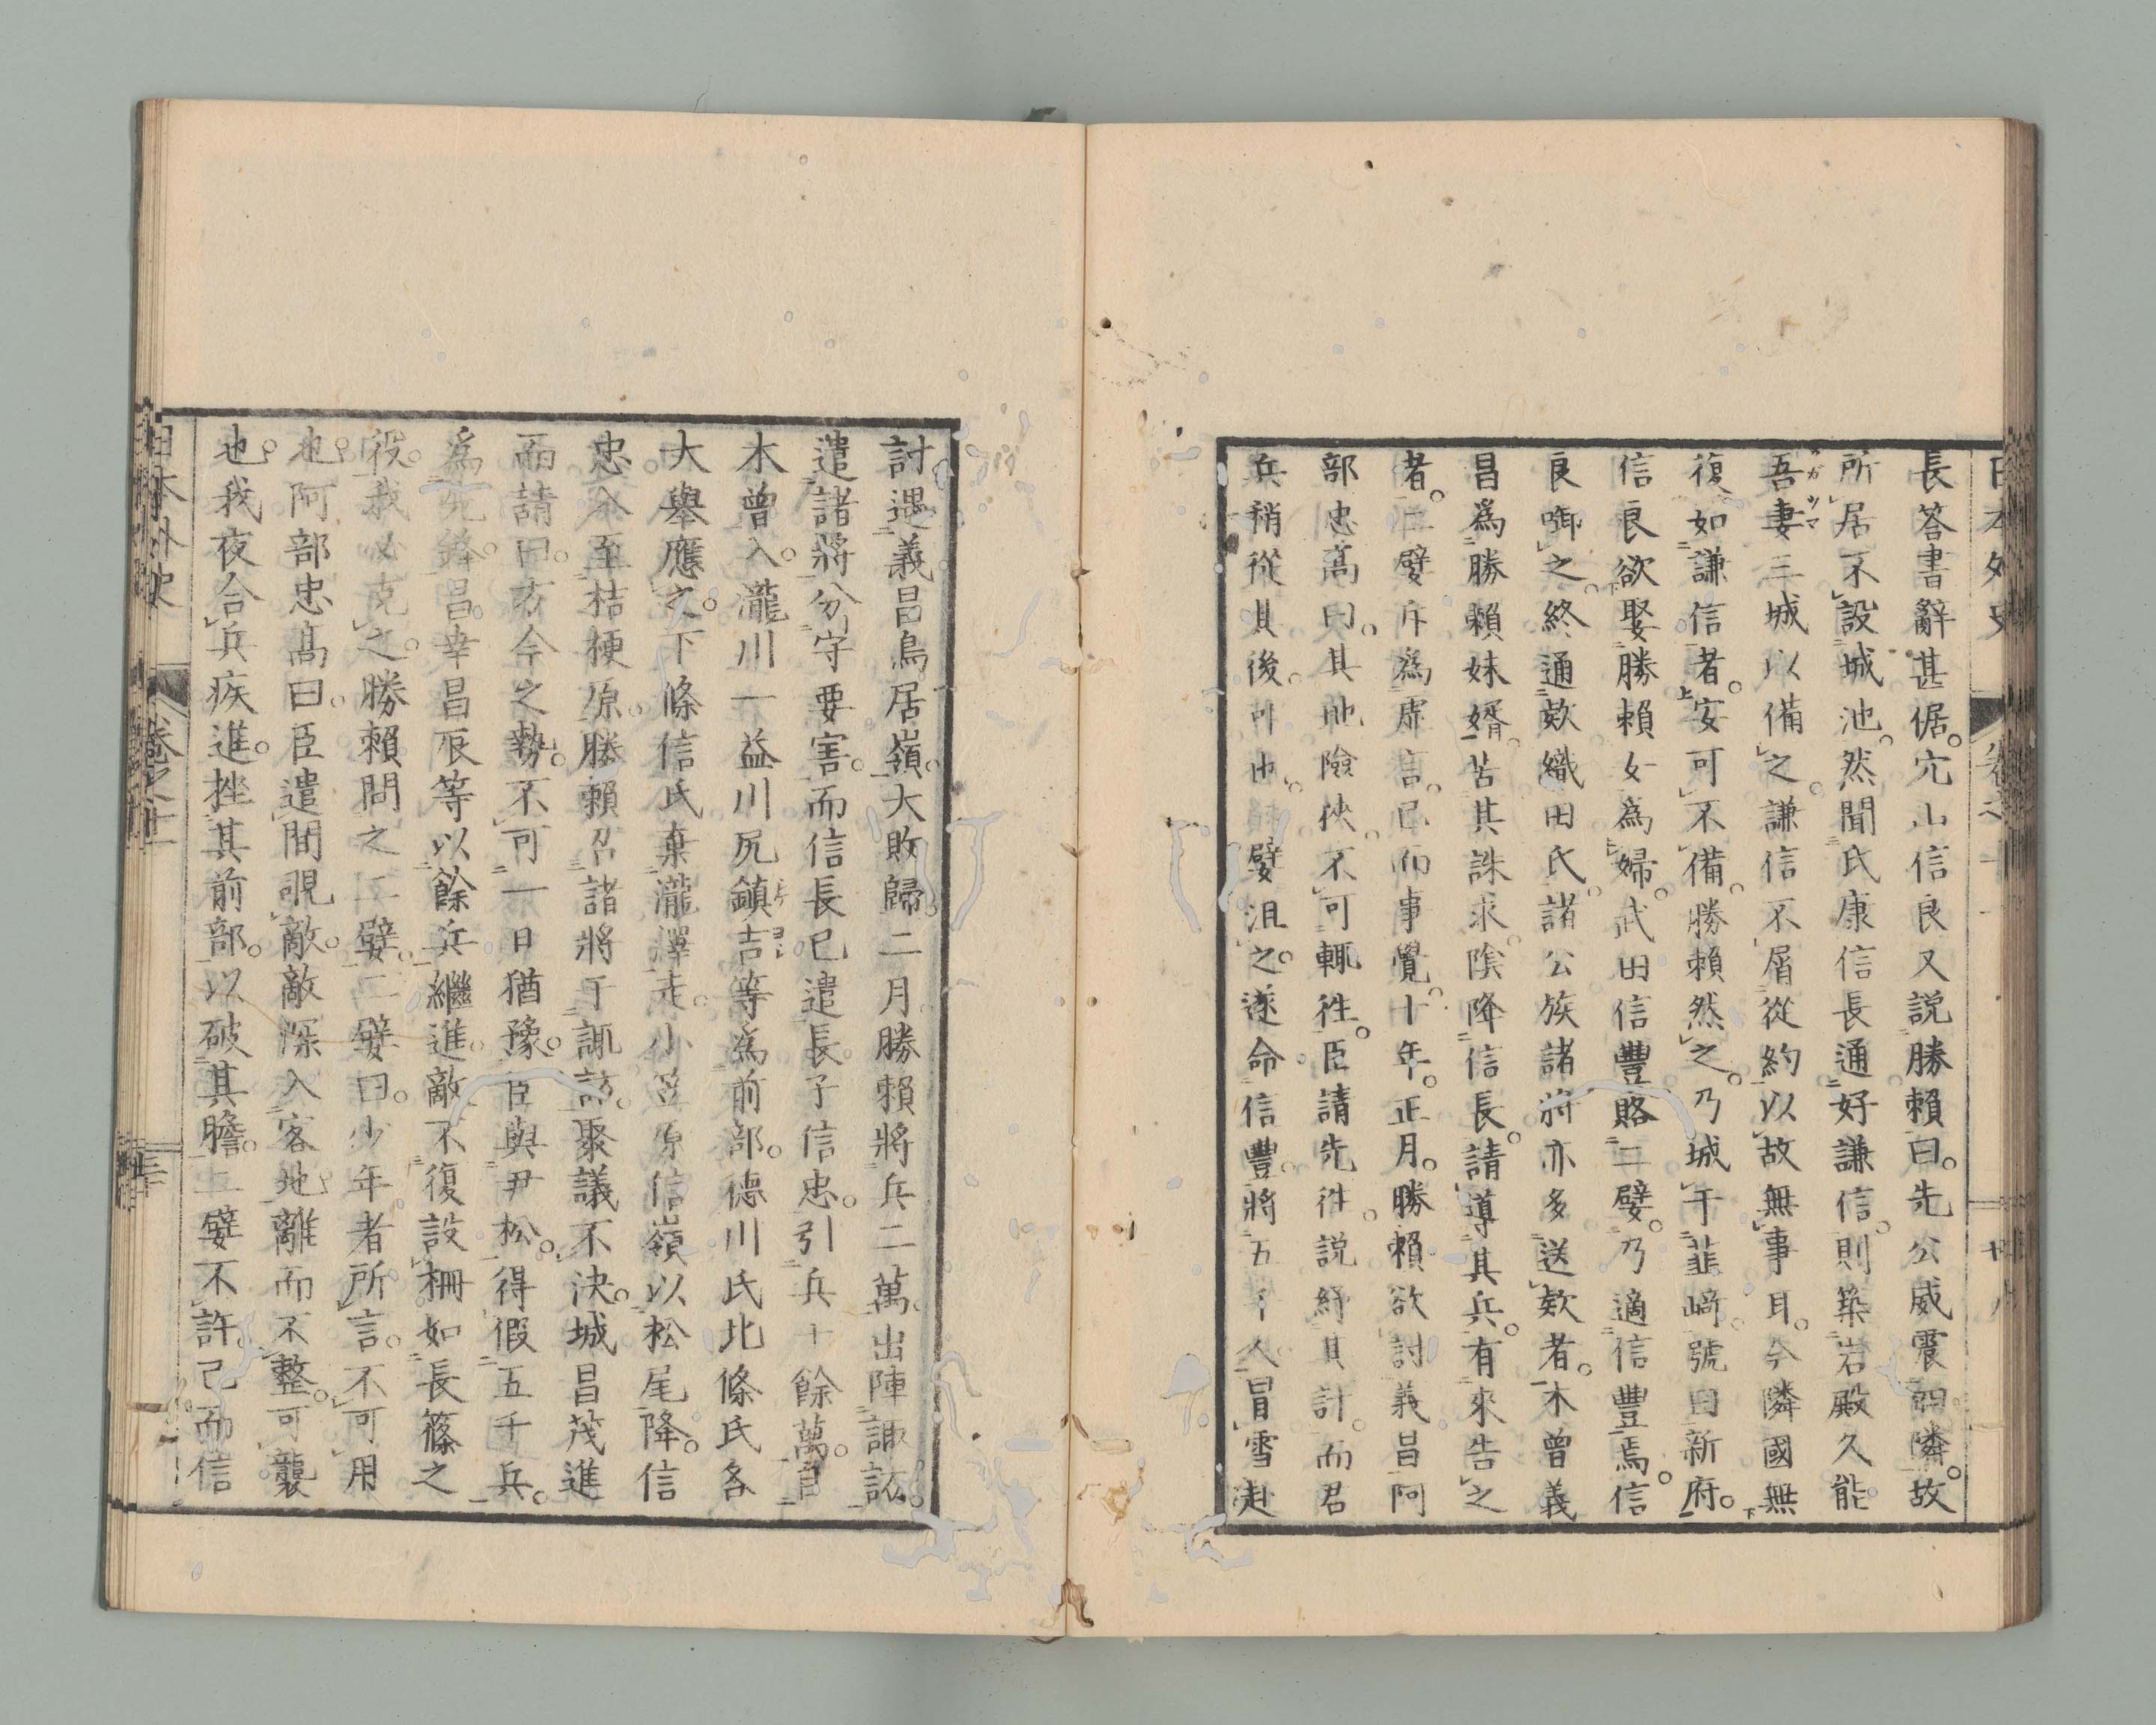 長荅書辭甚倨。穴山信良又説勝賴曰。先公威震四隣。故
所居不設城池。然聞氏康信長通好謙信。則築岩殿久能
吾妻三城以備之。謙信不屑從約以故無事耳。今隣國無
復如謙信者。安可不備。勝賴然之。乃城于韮﨑。號曰新府。
信良欲娶勝賴女爲婦。武田信豐賂二嬖。乃適信豐焉。信
良啣之。終通欵織田氏。諸公族諸將亦多送欵者。木曾義
昌爲勝賴妹婿。苦其誅求。陰降信長。請導其兵。有來告之
者。二嬖斥爲虛言。已而事覺。十年。正月。勝賴欲討義昌。阿
部忠髙曰。其地險俠。不可輒徃。臣請先徃説紓其計。而君
兵稍從其後。可也。嬖沮之。遂命信豐。將五千人冒雪赴
討。遇義昌鳥居嶺。大敗歸。二月。勝賴將兵二萬。出陣諏訪。
遣諸將分守要害。而信長已遣長子信忠。引兵十餘萬。自
木曾入。瀧川一益川尻鎮吉等爲前部。德川氏北條氏各
大舉應之。下條信氏棄瀧澤走。小笠原信嶺以松尾降。信
忠令至桔梗原。勝賴召諸將于諏訪。聚議不決。城昌茂進
而請曰。方今之勢。不可一日猶豫。臣與尹松。得假五千兵。
爲先鋒。昌幸昌辰等以餘兵繼進。敵不復設柵如長篠之
役。我必克之。勝賴問之二嬖。二嬖曰。少年者所言。不可用
也。阿部忠髙曰。臣遣間覘敵。敵深入客地。離而不整。可襲
也。我夜合兵疾進。挫其前部。以破其膽。二嬖不許。已而信
日本外史
卷之十一